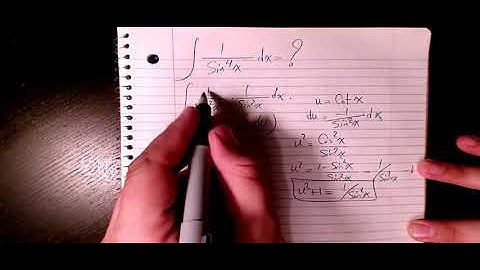 ∫ 1/Sin⁴x dx = ?
∫ 1/Sin²x dx.
u = Cot x
du = 1/Sin²x dx
u² = Cos²x/Sin²x
u² = 1-Sin²x/Sin²x = 1/Sin²x - 1
u²+1 = 1/Sin²x